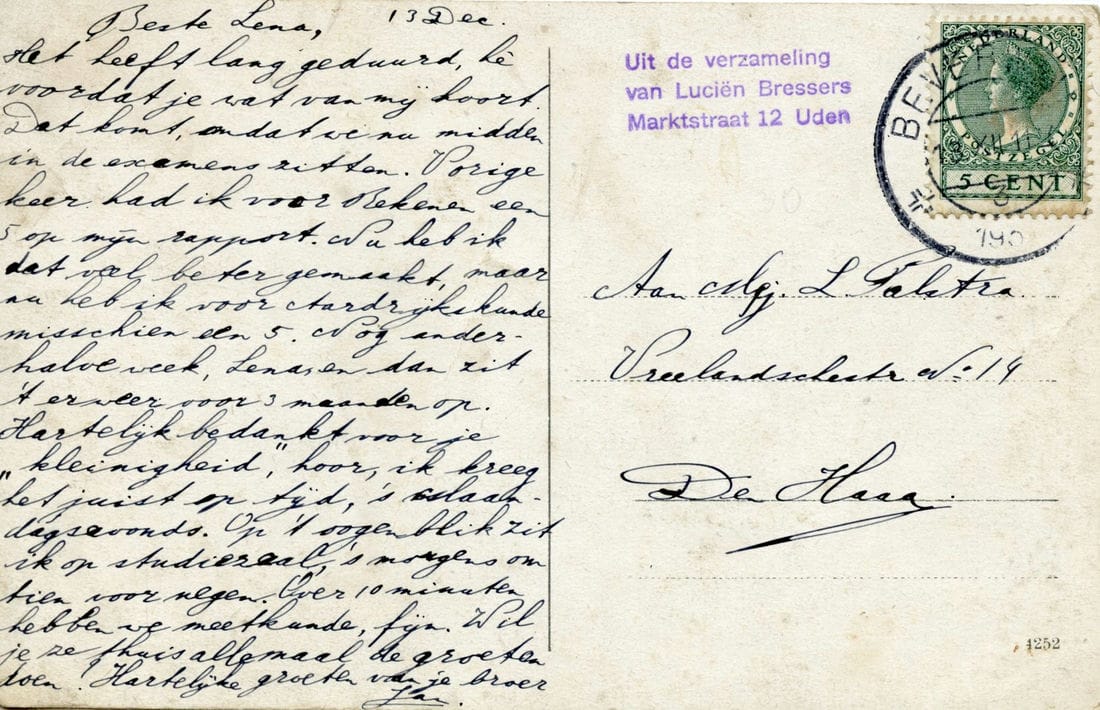 Beste Lena, 13 Dec.
Het heeft lang geduurd, hè
voordat je wat van mij hoort.
Dat komt, omdat we nu midden
in de examens zitten. Vorige
keer had ik voor Rekenen een
5 op mijn rapport. Nu heb ik
dat veel beter gemaakt, maar
nu heb ik voor Aardrijkskunde
misschien een 5. Nog ander-
halve week, Lena, en dan zit
't er weer voor 3 maanden op.
Hartelijk bedankt voor je
„kleinigheid", hoor, ik kreeg
het juist op tijd, 's Maan-
dagsavonds. Op 't oogenblik zit
ik op studiezaal, 's morgens om
tien voor negen. Over 10 minuten
hebben we meetkunde, fijn. Wil
je ze thuis allemaal de groeten
doen! Hartelijke groeten van je broer
Jan.
Uit de verzameling
van Luciën Bressers
Marktstraat 12 Uden
NEDERLAND
POSTZEGEL
5 CENT
BEVER
193
Aan Mej. L Talstra
Vreelandschestr No 14
Den Haag.
4252